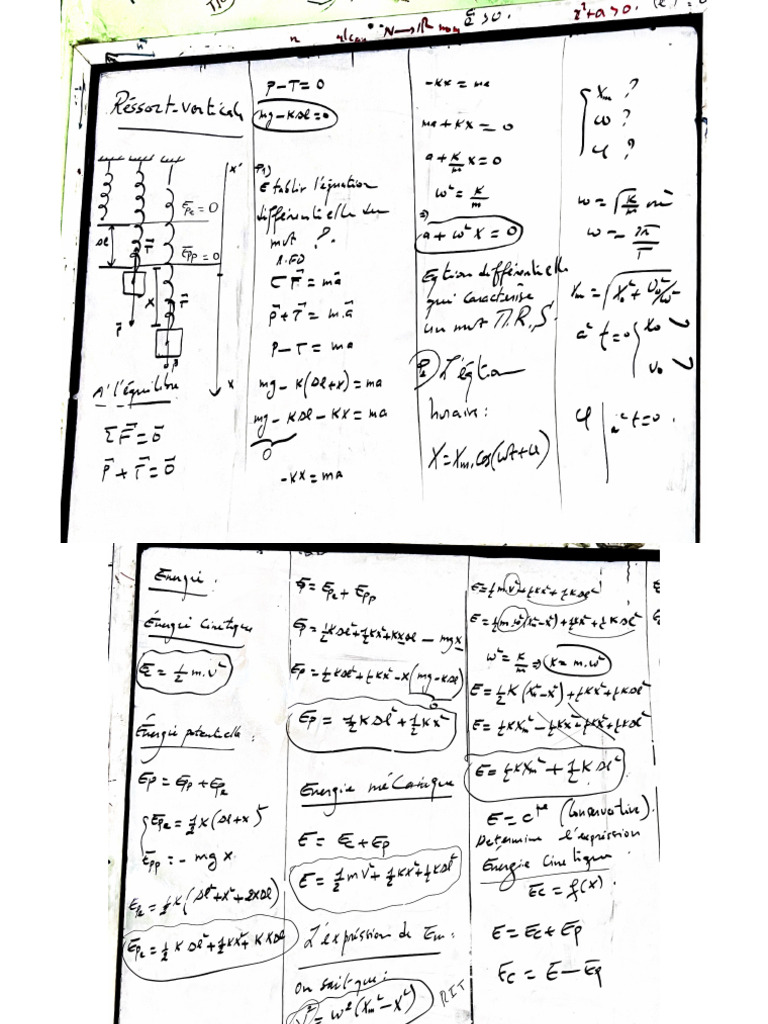 x²+a>0.
Réssort-vertical
x'
Epe=0
Δl
T
Epp=0
x
T
P
P
x
A' l'équilibre
ΣF=0
P+T=0
P-T=0
mg-KΔl=0
P1)
Etablir l'équation
différentielle du
mvt ?
R.FD
ΣF=ma
P+T=m.a
P-T=ma
mg-K(Δl+x)=ma
mg-KΔl-Kx=ma
0
-Kx=ma
-Kx=ma
ma+Kx=0
a+K/m x=0
ω²=K/m
a+ω²x=0
Eqtion différentielle
qui caractérise
un mvt Π.R.S.
L'éqtion
horaire:
X=Xm.cos(ωt+φ)
Xm ?
ω ?
φ ?
ω=√K/m où
ω=2π/T
Xm=√X0²+V0²/ω²
a² t=0 { X0
V0
φ | a² t=0.
Energie.
Énergie Cinétique
Ec=1/2 m.v²
Énergie potentielle:
Ep=Epp+Epe
Epe=1/2K(Δl+x)²
Epp=-mgx
Epe=1/2K(Δl²+x²+2xΔl)
Epe=1/2KΔl²+1/2Kx²+KxΔl
Ep=Epe+Epp
Ep=1/2KΔl²+1/2Kx²+KxΔl-mgx
Ep=1/2KΔl²+1/2Kx²-x(mg-KΔl)
0
Ep=1/2KΔl²+1/2Kx²
Energie mécanique
E=Ec+Ep
E=1/2mV²+1/2Kx²+1/2KΔl²
L'expréssion de Em:
on sait que:
V²=ω²(Xm²-X²)
RIT
E=1/2mV²+1/2Kx²+1/2KΔl²
E=1/2m.ω²(Xm²-x²)+1/2Kx²+1/2KΔl²
ω²=K/m ⇒ K=m.ω²
E=1/2K(Xm²-x²)+1/2Kx²+1/2KΔl²
E=1/2KXm²-1/2Kx²+1/2Kx²+1/2KΔl²
E=1/2KXm²+1/2KΔl²
E=cte (Conservative).
Determine l'expréssion
Energie Cinétique
Ec=f(x)
E=Ec+Ep
Ec=E-Ep